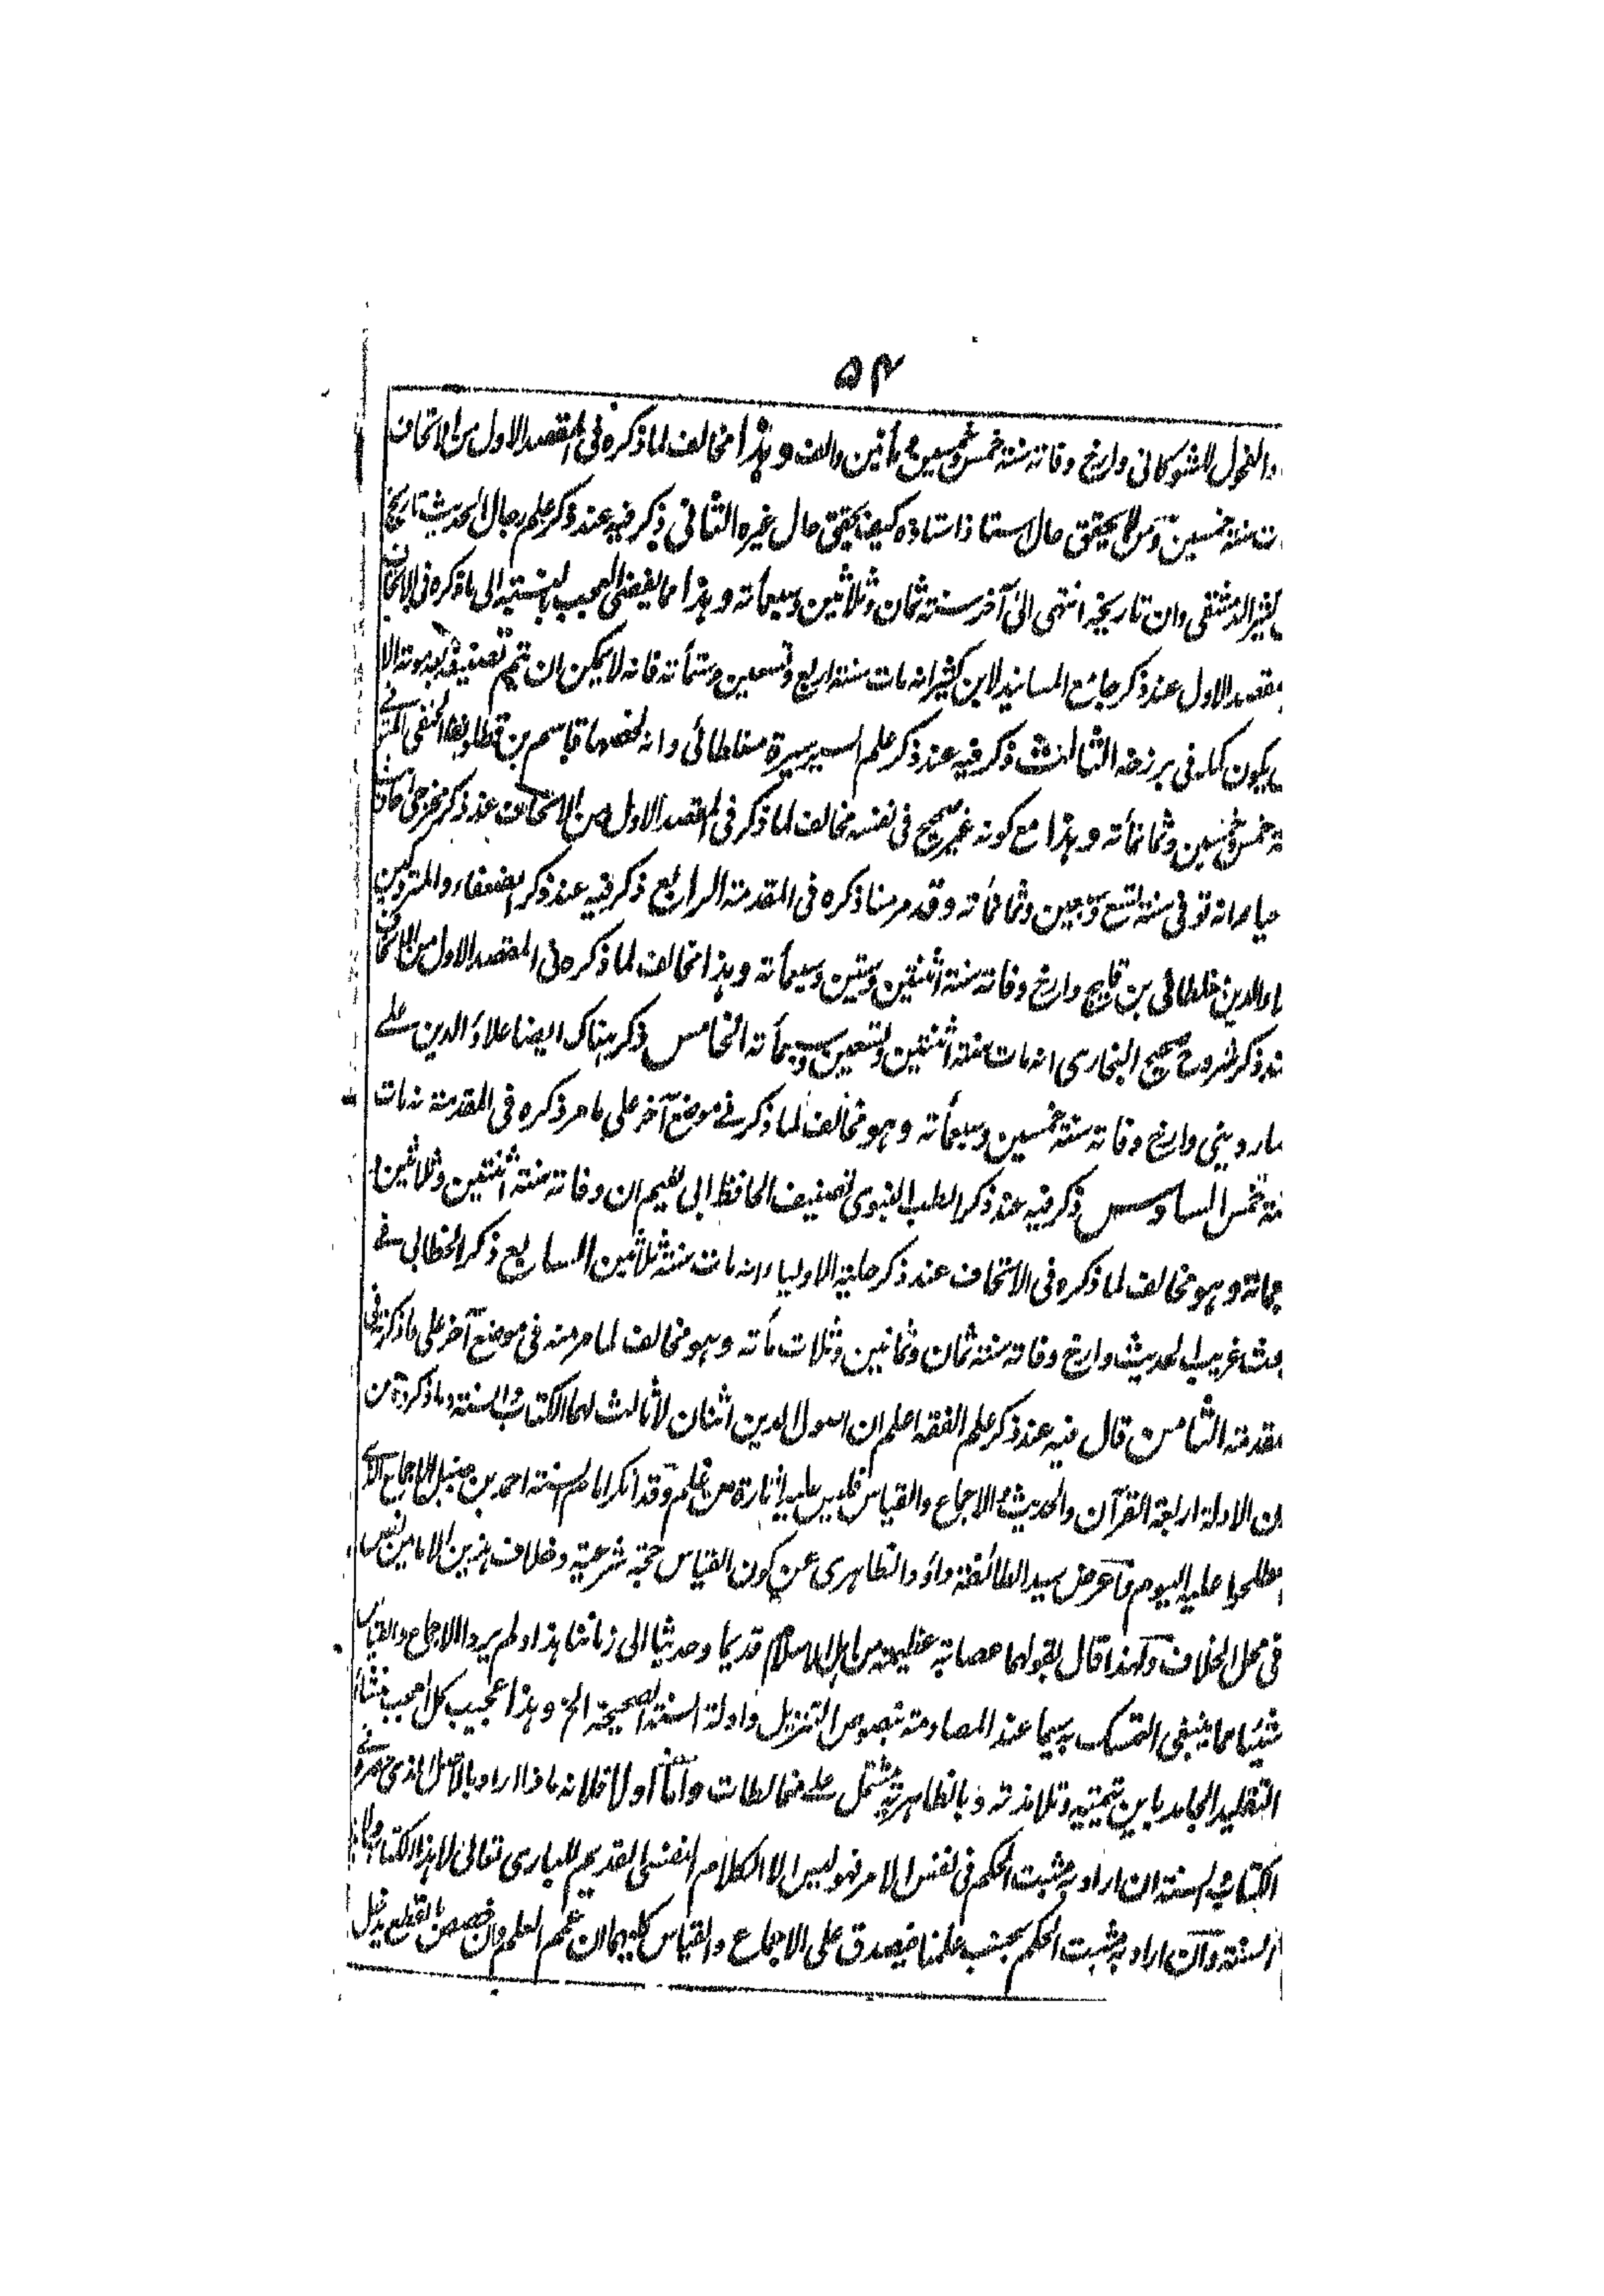 ٥٤
والفحول للشوكاني وارخ وفاته سنة خمس وخمسين ومأتين والف وهذا مخالف لما ذكره في المقصد الاول من الاتحاف
ت سنة خمسين ومن لا يحقق حال استاذ استاذه كيف يحقق حال غيره الثاني ذكر فيه عند ذكر علم رجال الحديث تاريخ
كثير الدمشقي وان تاريخه انتهى الى آخر سنة ثمان وثلاثين وسبعمأته وهذا مما يفضي العجب بالنسبة الى ما ذكره في الاتحاف
مقصد الاول عند ذكر جامع المسانيد لابن كثير انه مات سنة اربع وتسعين وستمأته فانه لا يمكن ان يتم تصنيفه بعد موته الا
يكون كمله في برزخه الثالث ذكر فيه عند ذكر علم السير سيرة مغلطائي وانه لخصها قاسم بن قطلوبغا الحنفي المتوفى سنة
ة خمس وخمسين وثمانمأته وهذا مع كونه غير صحيح في نفسه مخالف لما ذكر في المقصد الاول من الاتحاف عند ذكر مخرجي احاديث
حياء انه توفي سنة تسع وسبعين وثمانمأته وقد مر منا ذكره في المقدمة الرابع ذكر فيه عند ذكر الضعفاء والمتروكين
اء الدين مغلطائي بن قليج وارخ وفاته سنة اثنتين وستين وسبعمأته وهذا مخالف لما ذكره في المقصد الاول من الاتحاف
ند ذكر شروح صحيح البخاري انه مات سنة اثنتين وتسعين وسبعمأته الخامس ذكر هناك ايضا علاؤ الدين علي
مارديني وارخ وفاته سنة خمسين وسبعمأته وهو مخالف لما ذكر في موضع آخر على ما مر ذكره في المقدمة نه مات
نة خمس السادس ذكر فيه عند ذكر الطب النبوي تصنيف الحافظ ابي نعيم ان وفاته سنة اثنتين وثلاثين و
عمائة وهو مخالف لما ذكره في الاتحاف عند ذكر حلية الاولياء انه مات سنة ثلاثين السابع ذكر الخطابي في
بحث غريب الحديث وارخ وفاته سنة ثمان وثمانين وثلاث مأته وهو مخالف لما مر منه في موضع آخر على ما ذكرنا في
مقدمة الثامن قال فيه عند ذكر علم الفقه اعلم ان اصول الدين اثنان لا ثالث لهما الكتاب والسنة وما ذكروه من
ن الادلة اربعة القرآن والحديث والاجماع والقياس فليس عليه اثارة من علم وقد انكر امام السنة احمد بن حنبل الاجماع الذي
صطلحوا عليه اليوم وآعرض سيد الطائفة داؤد الظاهري عن كون القياس حجة شرعية وخلاف هذين الامامين نص
في محل الخلاف ولهذا قال بقولهما عصابة عظيمة من اهل الاسلام قديما وحديثا الى زماننا هذا ولم يروا الاجماع والقياس
شيئا مما ينبغي التمسك به سيما عند المصادمة بنصوص التنزيل وادلة السنة الصحيحة الخ وهذا عجيب كل العجب منشاؤه
التقليد الجامد بابن تيمية وتلامذته وبالظاهرية مشتمل على مغالطات وآما اولا فلانه ماذا اراد بالاصل الذي حصره في
الكتاب والسنة ان اراد به مثبت الحكم في نفس الامر فهو ليس الا الكلام النفسي القديم للباري تعالى لا هذا الكتاب ولا
السنة وآن اراد به مثبت الحكم بحسب علمنا فيصدق على الاجماع والقياس كليهما ان عمم العلم وان خصص بالقطع يدخل